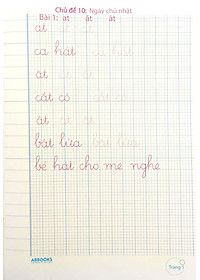 Chủ đề 10: Ngày chủ nhật
Bài 1: at ăt ât
at at at
ca hát ca hát
ăt ăt ăt
cắt cỏ cắt cỏ
ât ât ât
bật lửa bật lửa
bé hát cho mẹ nghe
ABBOOKS
Trang 1